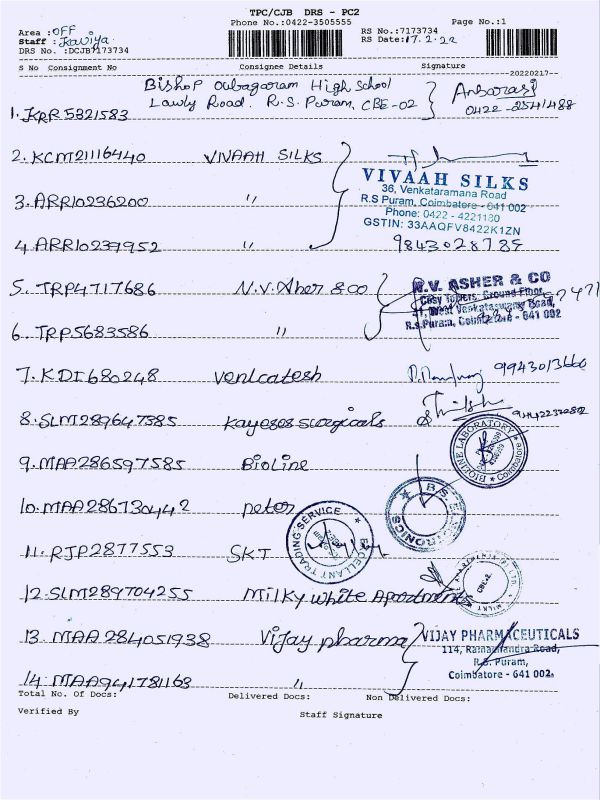 TPC/CJB DRS - PC2
Phone No.:0422-3505555 Page No.:1
Area : OFF
Staff : Kaviya
DRS No. :DCJB7173734
RS No.:7173734
RS Date:17.2.22
S No Consignment No Consignee Details Signature
20220217
Bishop Oubagaram High School
Lawly Road. R.S. Puram, CBE-02
Anbarasi
0422-2541488
1. KRR5321583
2. KCM21116440 VIVAAH SILKS
VIVAAH SILKS
36, Venkataramana Road
R.S Puram, Coimbatore - 641 002
Phone: 0422 - 4221180
GSTIN: 33AAQFV8422K1ZN
3. ARR10236200 "
4. ARR10239952 "
5. TRP4717686 N.V. Asher & co
N.V. ASHER & CO
Cosy Towers, Ground Floor,
21, West Venkataswamy Road,
R.S.Puram, Coimbatore - 641 002
6. TRP5683586 "
7. KDI680248 Venkatesh 9943013660
8. SLM289647585 Kayeses surgicals
9. MAA286597585 Bioline
BIOLINE LABORATORY
Coimbatore
10. MAA286730442 peter
11. RJP2877553 SKT
TRADING SERVICE
12. SLM289704255 Milky white Apartments
MILKY
CBE-2
13. MAA284051938 Vijay pharma
VIJAY PHARMACEUTICALS
114, Ramachandra Road,
R.S. Puram,
Coimbatore - 641 002.
14. MAA941781163 "
Total No. Of Docs: Delivered Docs: Non Delivered Docs:
Verified By Staff Signature